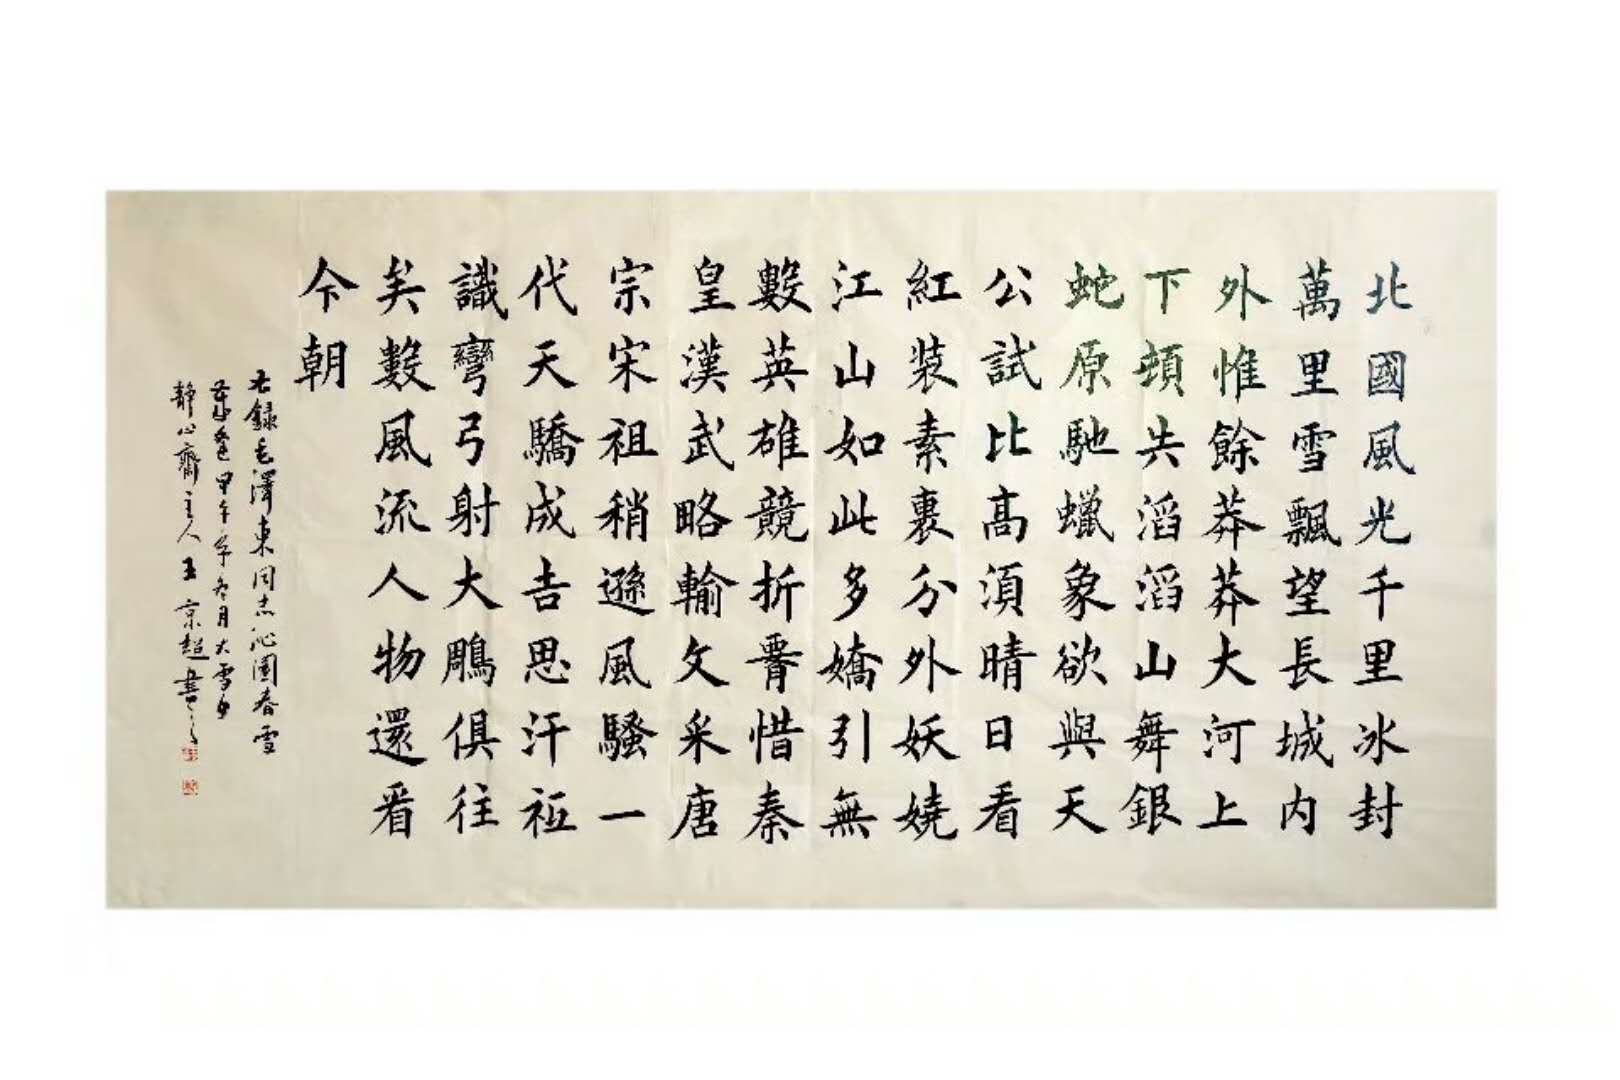 北國風光千里冰封
萬里雪飄望長城内
外惟餘莽莽大河上
下頓失滔滔山舞銀
蛇原馳蠟象欲與天
公試比高須晴日看
紅裝素裹分外妖嬈
江山如此多嬌引無
數英雄競折腰惜秦
皇漢武略輸文采唐
宗宋祖稍遜風騷一
代天驕成吉思汗祗
識彎弓射大鵰俱往
矣數風流人物還看
今朝
右録毛澤東同志沁園春雪
甲午年冬月大雪日
靜心齋主人王京超書